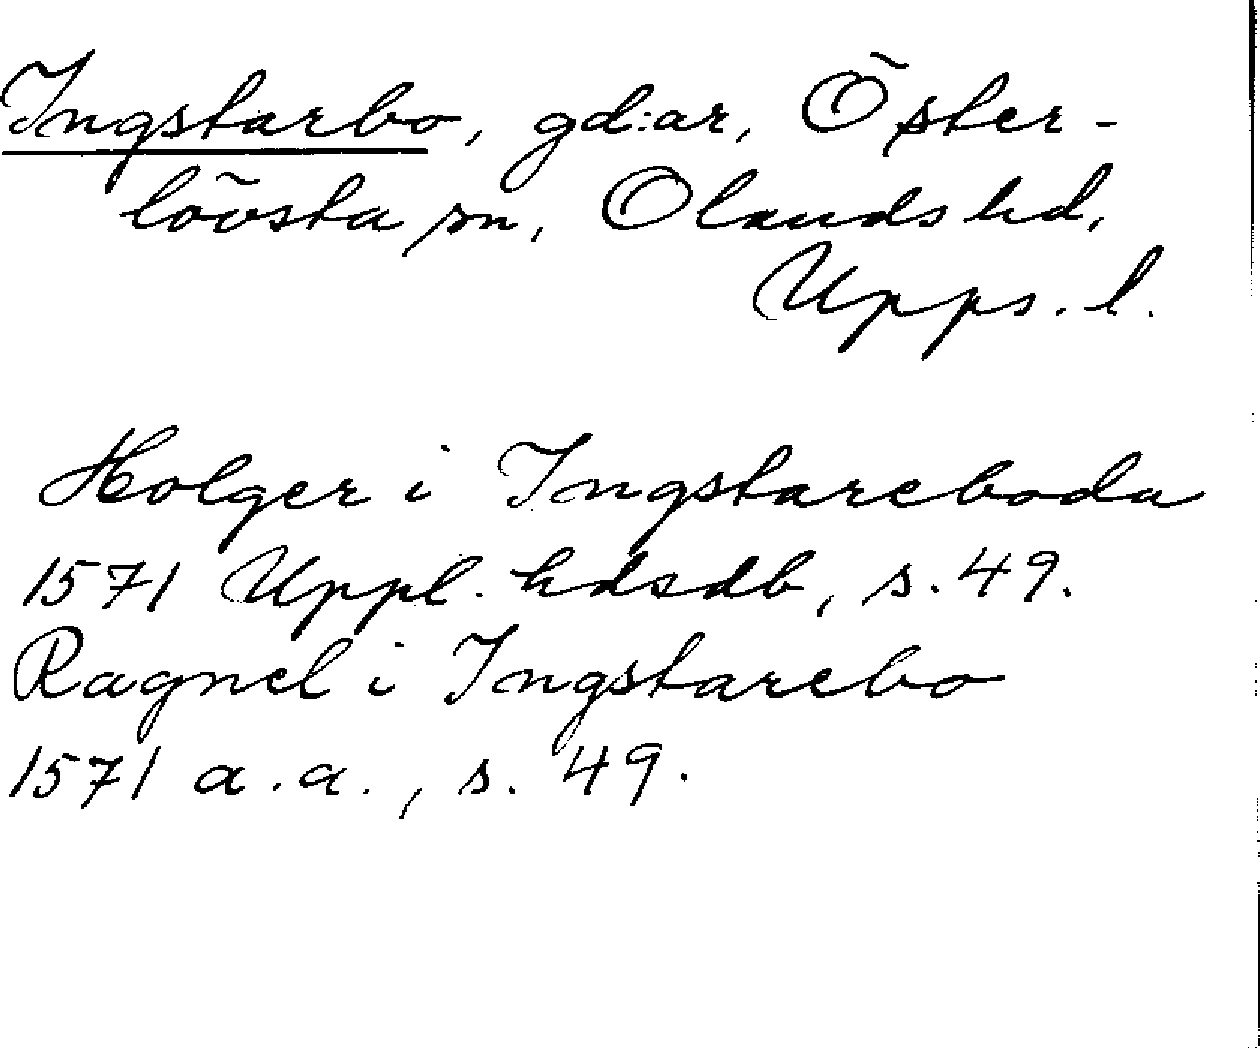 Ingstarbo, gd:ar, Öster-
lövsta sn, Olands hd,
Upps. l.
Holger i Ingstareboda
1571 Uppl. hdsdb, s. 49.
Ragnel i Ingstarebo
1571 a.a., s. 49.